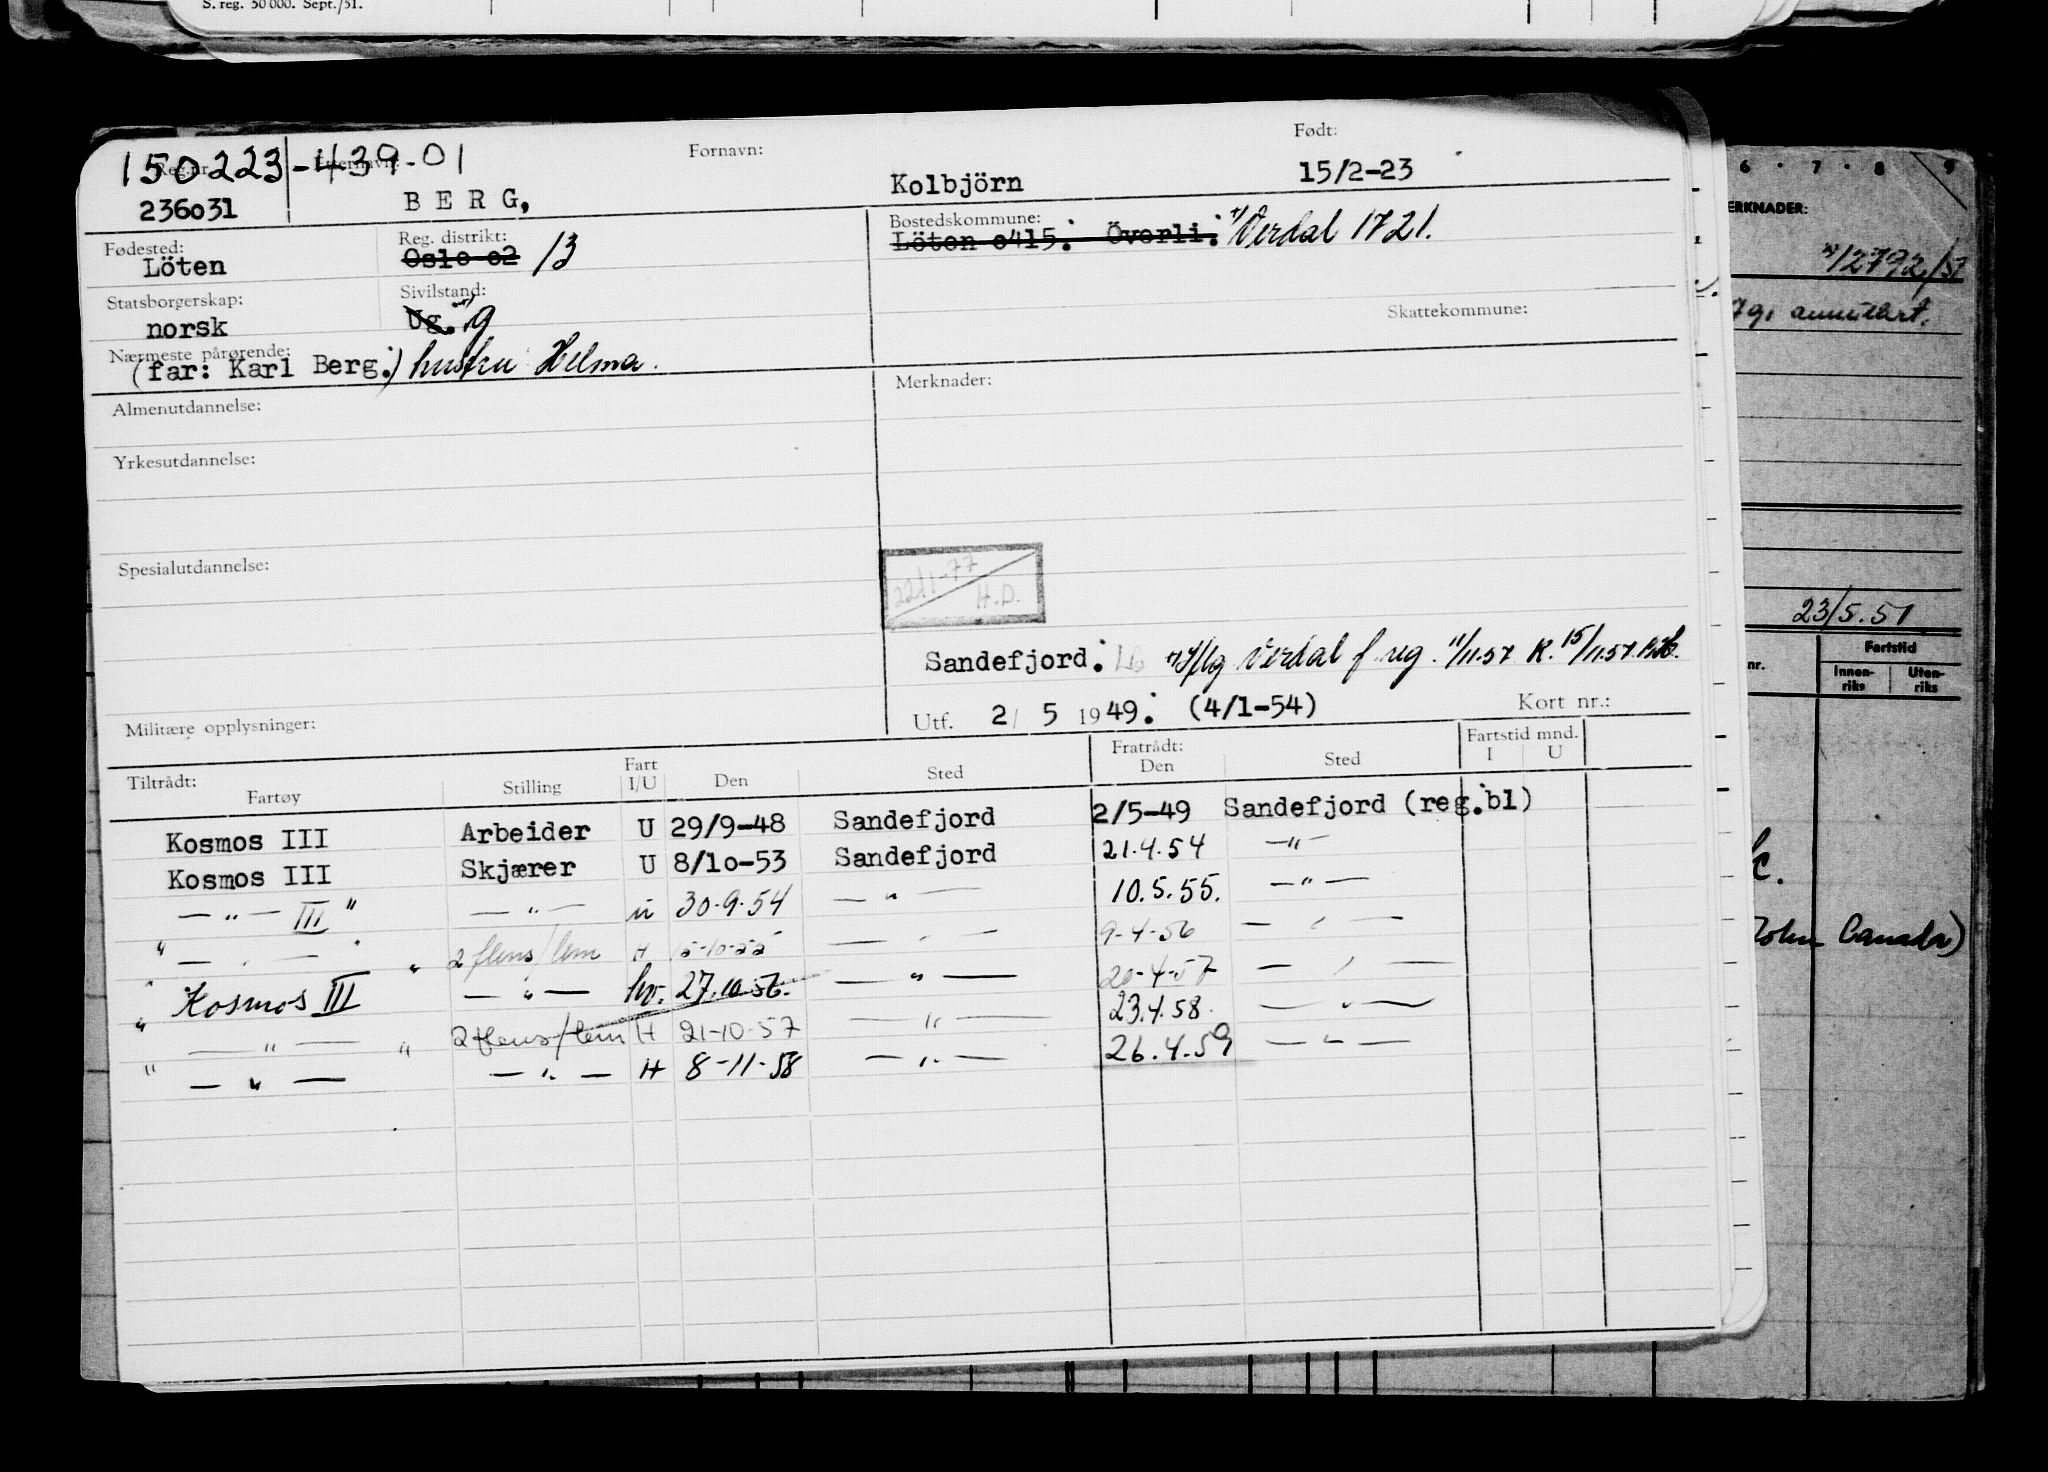 S. reg. 50 000. Sept./51.
Reg.nr. Etternavn: Fornavn: Født:
150223-439-01
236031 BERG, Kolbjörn 15/2-23
Fødested: Reg. distrikt: Bostedskommune:
Löten Oslo o2 13 Löten o415. Överli. Verdal 1721.
Statsborgerskap: Sivilstand: Skattekommune:
norsk Ug. g
Nærmeste pårørende:
(far: Karl Berg.) hustru Helma.
Almenutdannelse: Merknader:
Yrkesutdannelse:
Spesialutdannelse:
22/1-77
H.D.
Sandefjord. Verdal f. reg. 11/11.57 K. 15/11.57
Militære opplysninger: Utf. 2/ 5 1949. (4/1-54) Kort nr.:
Tiltrådt: Fratrådt: Fartstid mnd.
Fartøy Stilling Fart I/U Den Sted Den Sted I U
Kosmos III Arbeider U 29/9-48 Sandefjord 2/5-49 Sandefjord (reg.bl)
Kosmos III Skjærer U 8/10-53 Sandefjord 21.4.54 —"—
—"— III " —"— u 30.9.54 —"— 10.5.55. —"—
" —"— " 2 flens/lem H 15-10-55 —"— 9-4-56 —"—
" Kosmos III —"— hv. 27.10.56. —"— 20-4-57 —"—
" —"— " 2 flens/lem H 21-10-57 —"— 23.4.58. —"—
" —"— —"— H 8-11-58 —"— 26.4.59 —"—
6 · 7 · 8 · 9
ERKNADER:
2792/57
annullert.
23/5.51
nr. Fartstid
Innen-riks Uten-riks
John Canada)